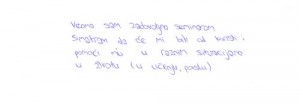 Veoma sam zadovoljna seminarom
Smatram da će mi biti od koristi i
pomoći mi u raznim situacijama
u životu (u učenju, poslu)